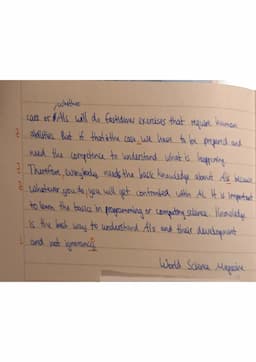 whether
care or AIs will do fastidious exercises that require human
abilities. But if that's the case, we have to be prepared and
need the competence to understand what is happening.
Therefore, everybody needs the basic knowledge about AIs because
whatever you do, you will get confronted with AI. It is important
to learn the basics in programming or computing science. Knowledge
is the best way to understand AIs and their development
and not ignorance.
World Science Magazine